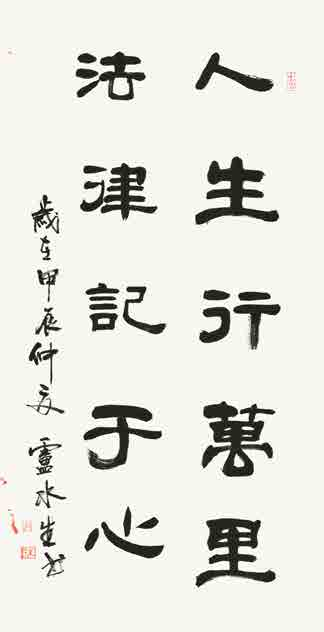 人生行萬里
法律記于心
歲在甲辰仲夏 盧水生書